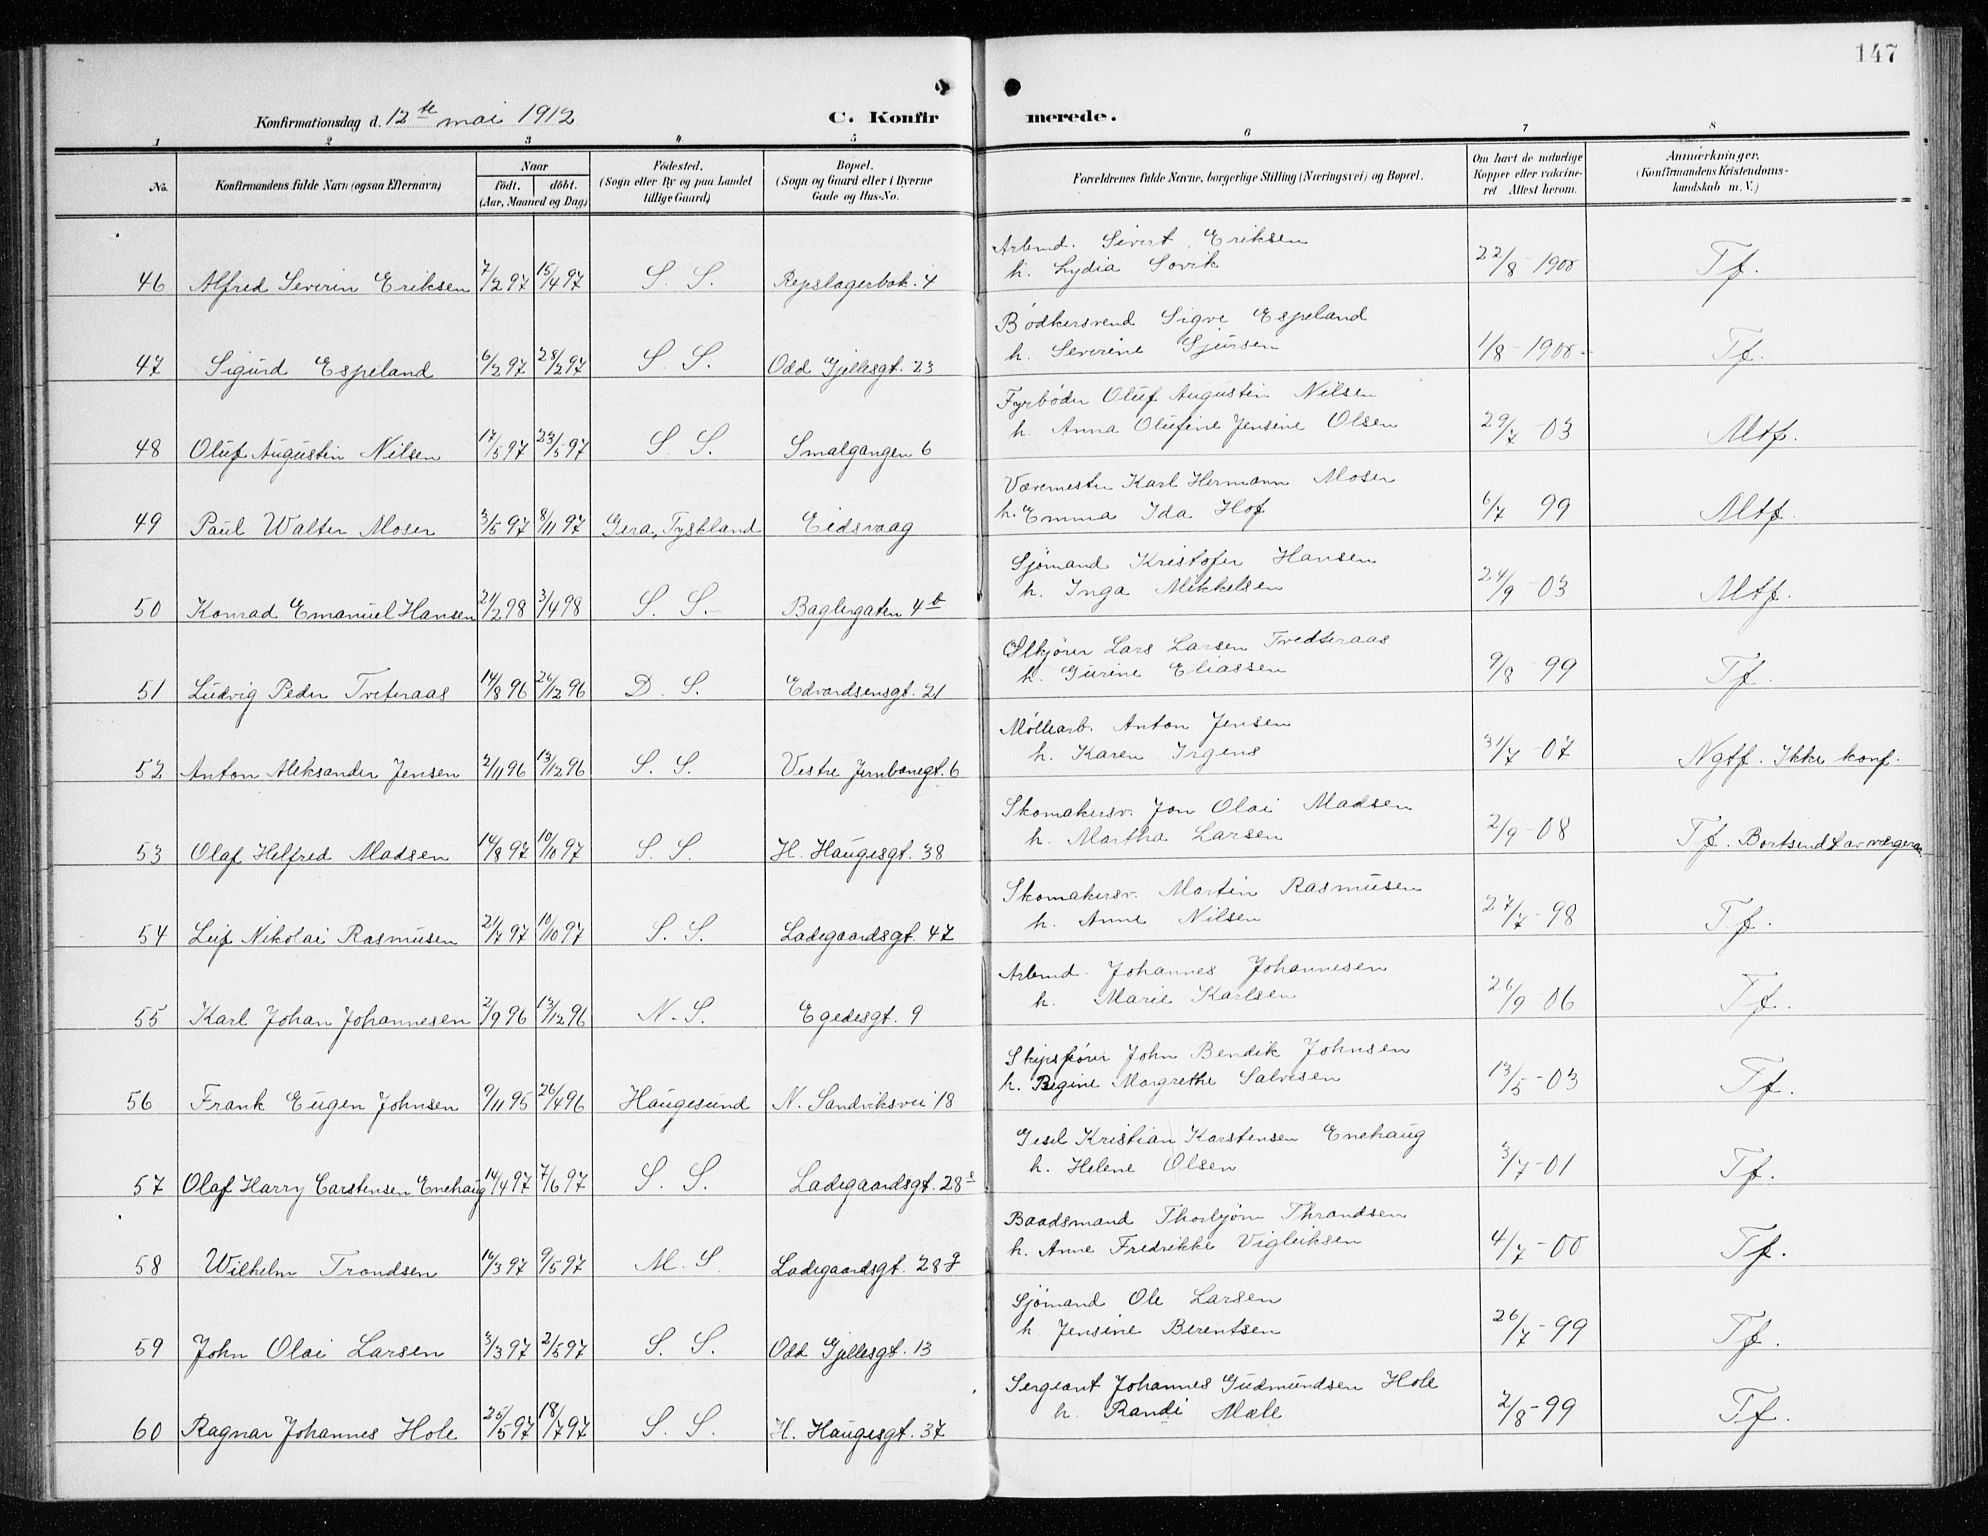 147
Konfirmationsdag d. 12te mai 1912
C. Konfirmerede.
1 2 3 4 5 6 7 8
No.
Konfirmandens fulde Navn (ogsaa Efternavn)
Naar
födt. döbt.
(Aar, Maaned og Dag)
Födested.
(Sogn eller By og paa Landet
tillige Gaard)
Bopæl.
(Sogn og Gaard eller i Byerne
Gade og Hus-No.
Forældrenes fulde Navne, borgerlige Stilling (Næringsvei) og Bopæl.
Om havt de naturlige
Kopper eller vakcine-
ret Attest herom.
Anmærkninger.
(Konfirmandens Kristendoms-
kundskab m. V.)
Arbmd. Sivert Eriksen
46 Alfred Severin Eriksen 7/2 97 15/4 97 S. S. Repslagerbak. 4 h. Lydia Sovik 22/8 - 1900 Tf.
Bødkersvend Sigve Espeland
47 Sigurd Espeland 6/2 97 28/2 97 S. S. Odd Gjellesgt. 23 h. Severine Sjursen 1/8 - 1900 - Tf.
Fyrbøder Oluf Augustin Nilsen
48 Oluf Augustin Nilsen 17/5 97 23/5 97 S. S. Smalgangen 6 h. Anna Olufine Jensine Olsen 29/7 - 03 Mtf.
Vævemester Karl Hermann Moser
49 Paul Walter Moser 3/5 97 8/11 97 Gera, Tyskland Eidsvaag h. Emma Ida Hof 6/7 99 Mtf.
Sjømand Kristofer Hansen
50 Konrad Emanuel Hansen 21/2 98 3/4 98 S. S. Baglergaten 4b h. Inga Mikkelsen 24/9 - 03 Mtf.
Ølkjører Lars Larsen Tvedteraas
51 Ludvig Peder Tveteraas 14/8 96 26/12 96 D. S. Edvardsensgt. 21 h. Gurine Eliassen 9/8 - 99 Tf.
Møllearb. Anton Jensen
52 Anton Aleksander Jensen 2/11 96 13/12 96 S. S. Vestre Jernbanegt. 6 h. Karen Irgens 31/7 - 07 Ngtf. Ikke konf.
Skomakersv. Jon Olai Madsen
53 Olaf Helfred Madsen 14/8 97 10/10 97 S. S. H. Haugesgt. 38 h. Martha Larsen 2/9 - 08 Tf. Bortsendt av værgeraa.
Skomakersv. Martin Rasmusen
54 Leif Nikolai Rasmusen 21/7 97 10/10 97 S. S. Ladegaardsgt. 47 h. Anne Nilsen 27/7 - 98 Tf.
Arbmd. Johannes Johannesen
55 Karl Johan Johannesen 2/9 96 13/12 96 N. S. Egedesgt. 9 h. Marie Karlsen 26/9 - 06 Tf.
Skipsfører John Bendik Johnsen
56 Frank Eugen Johnsen 9/11 95 26/4 96 Haugesund N. Sandviksvei 18 h. Regine Margrethe Salvesen 13/5 - 03 Tf.
Gesel Kristian Karstensen Enehaug
57 Olaf Harry Carstensen Enehaug 14/4 97 7/6 97 S. S. Ladegaardsgt. 28e h. Helene Olsen 3/7 - 01 Tf.
Baadsmand Thorbjørn Thrandsen
58 Wilhelm Trondsen 16/3 97 9/5 97 M. S. Ladegaardsgt. 28g h. Anne Fredrikke Vigleiksen 4/7 - 00 Tf.
Sjømand Ole Larsen
59 John Olai Larsen 3/3 97 2/5 97 S. S. Odd Gjellesgt. 13 h. Jensine Berentsen 26/7 - 99 Tf.
Sergeant Johannes Gudmundsen Hole
60 Ragnar Johannes Hole 25/5 97 18/7 97 S. S. H. Haugesgt. 37 h. Randi Mæle 2/8 - 99 Tf.